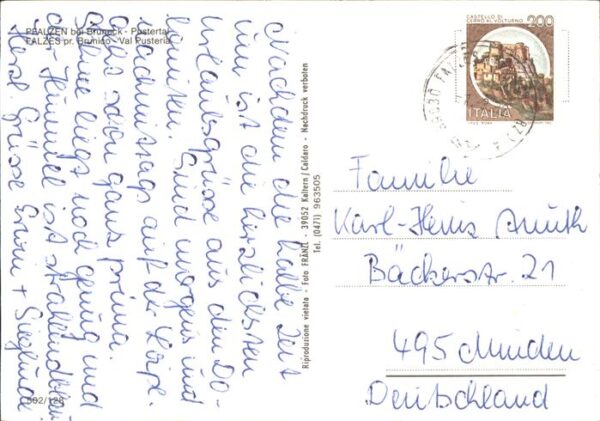 PFALZEN bei Bruneck - Pustertal
FALZES pr. Brunico - Val Pusteria
Nachdem die halbe Zeit
um ist die herzlichsten
Urlaubsgrüsse aus den Do-
lomiten. Sind morgens und
nachmittags auf der Loipe.
Geht schon ganz prima.
Schnee liegt noch genug und
der Himmel ist strahlendblau
Herzl. Grüsse Erwin + Sieglinde
502/128
Riproduzione vietata - Foto FRÄNZL - 39052 Kaltern/Caldaro - Nachdruck verboten
Tel. (0471) 963505
CASTELLO DI
CERRO AL VOLTURNO
200
ITALIA
Familie
Karl-Heinz
Bäckerstr. 21
495 Minden
Deutschland